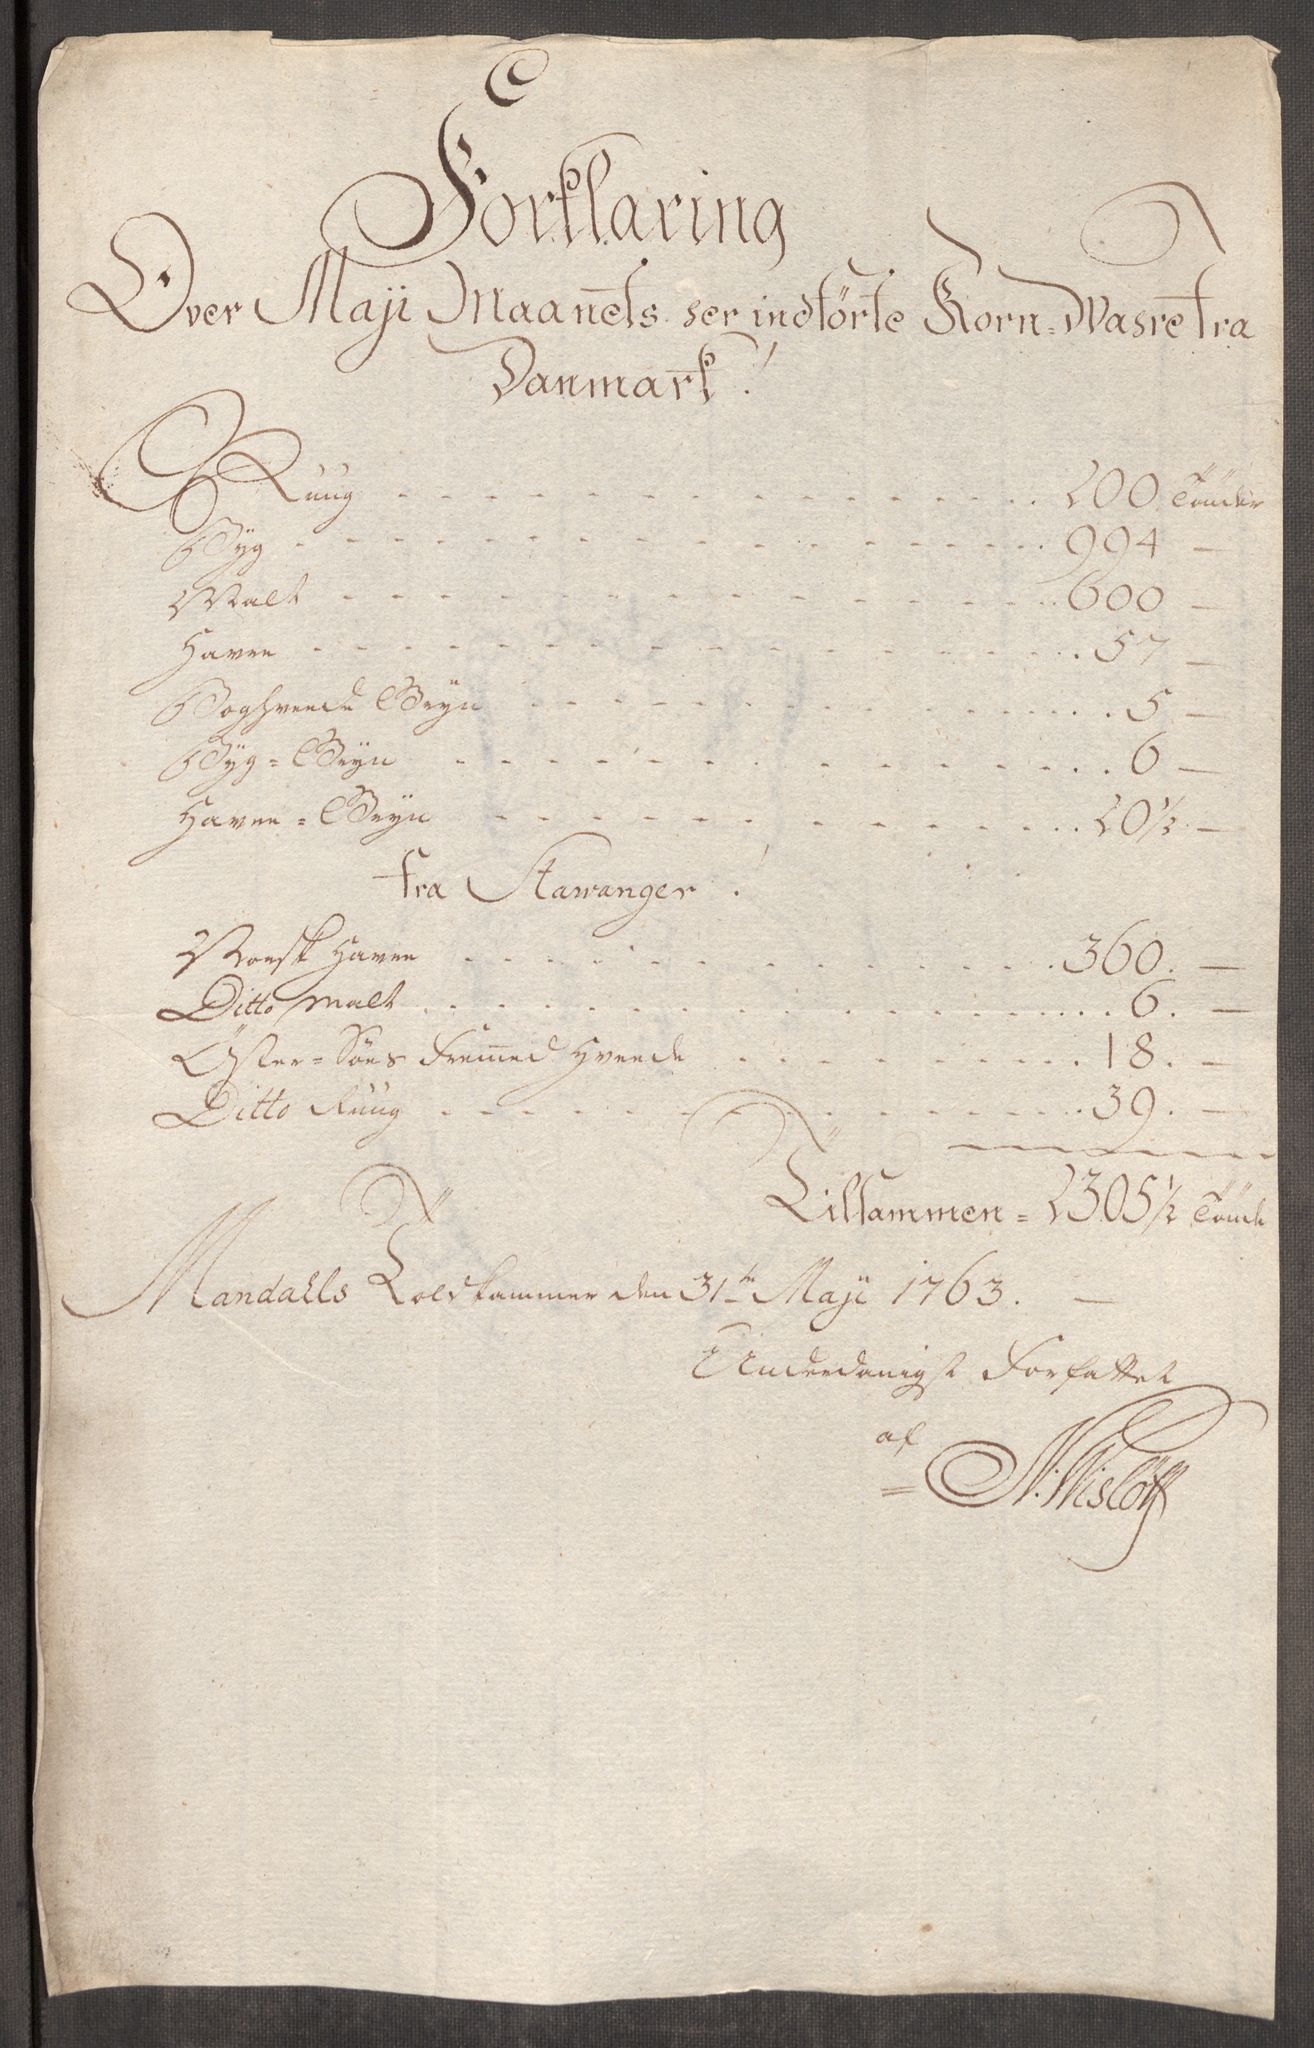 Forklaring
Over Maji Maanets her indförte Korn-Wahre fra
Danmark!
Ruug 200 Tönder
Byg 994 —
Malt 600 —
Havre 57 —
Boghveede Gryn 5 —
Byg = Gryn 6 —
Havre = Gryn 20 1/2 —
fra Stawanger!
Norsk Havre 360. —
Ditto Malt 6. —
Öster = Söes Fremmed Hveede 18. —
Ditto Ruug 39. —
Tilsammen = 2305 1/2 Tönde
Mandahls Toldkammer den 31te Maji 1763. —
Underdanigst Forfattet
af
= N: Wislöff